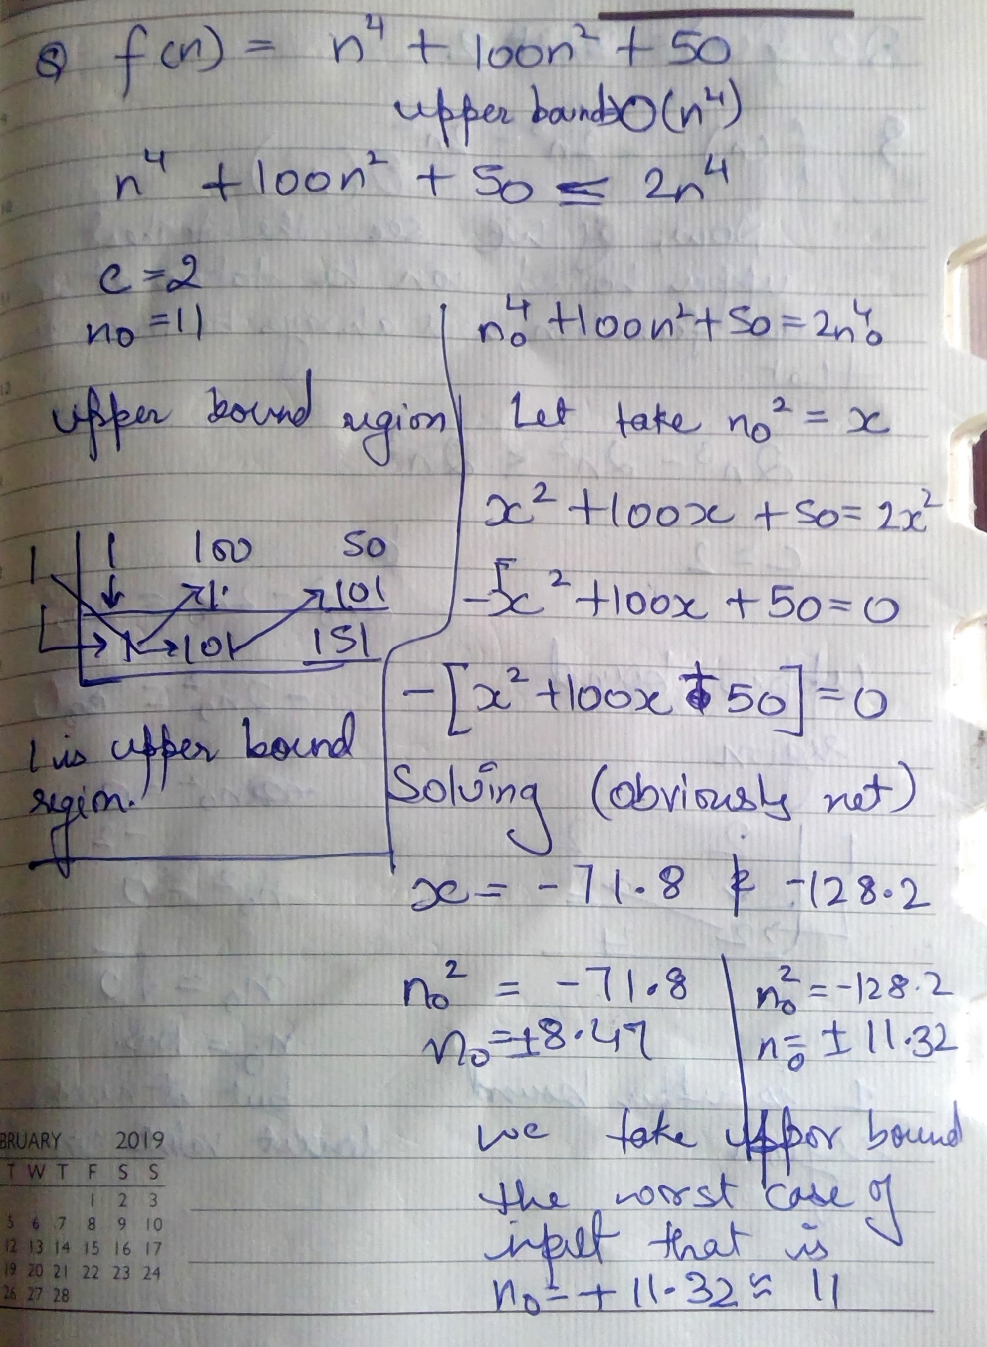 Q f(n) = n⁴ + 100n² + 50
upper bound O(n⁴)
n⁴ + 100n² + 50 ≤ 2n⁴
c = 2
n₀ = 11
upper bound region
1 | 1 100 50
1 101
1 101 151
1 is upper bound
region.
n₀⁴ + 100n² + 50 = 2n₀⁴
Let take n₀² = x
x² + 100x + 50 = 2x²
-x² + 100x + 50 = 0
-[x² + 100x + 50] = 0
Solving (obviously not)
x = -71.8 & -128.2
n₀² = -71.8
n₀ = ±8.47
n₀² = -128.2
n₀ = ± 11.32
we take upper bound
the worst case of
input that is
n₀ = + 11.32 ≈ 11
BRUARY 2019
T W T F S S
1 2 3
5 6 7 8 9 10
12 13 14 15 16 17
19 20 21 22 23 24
26 27 28